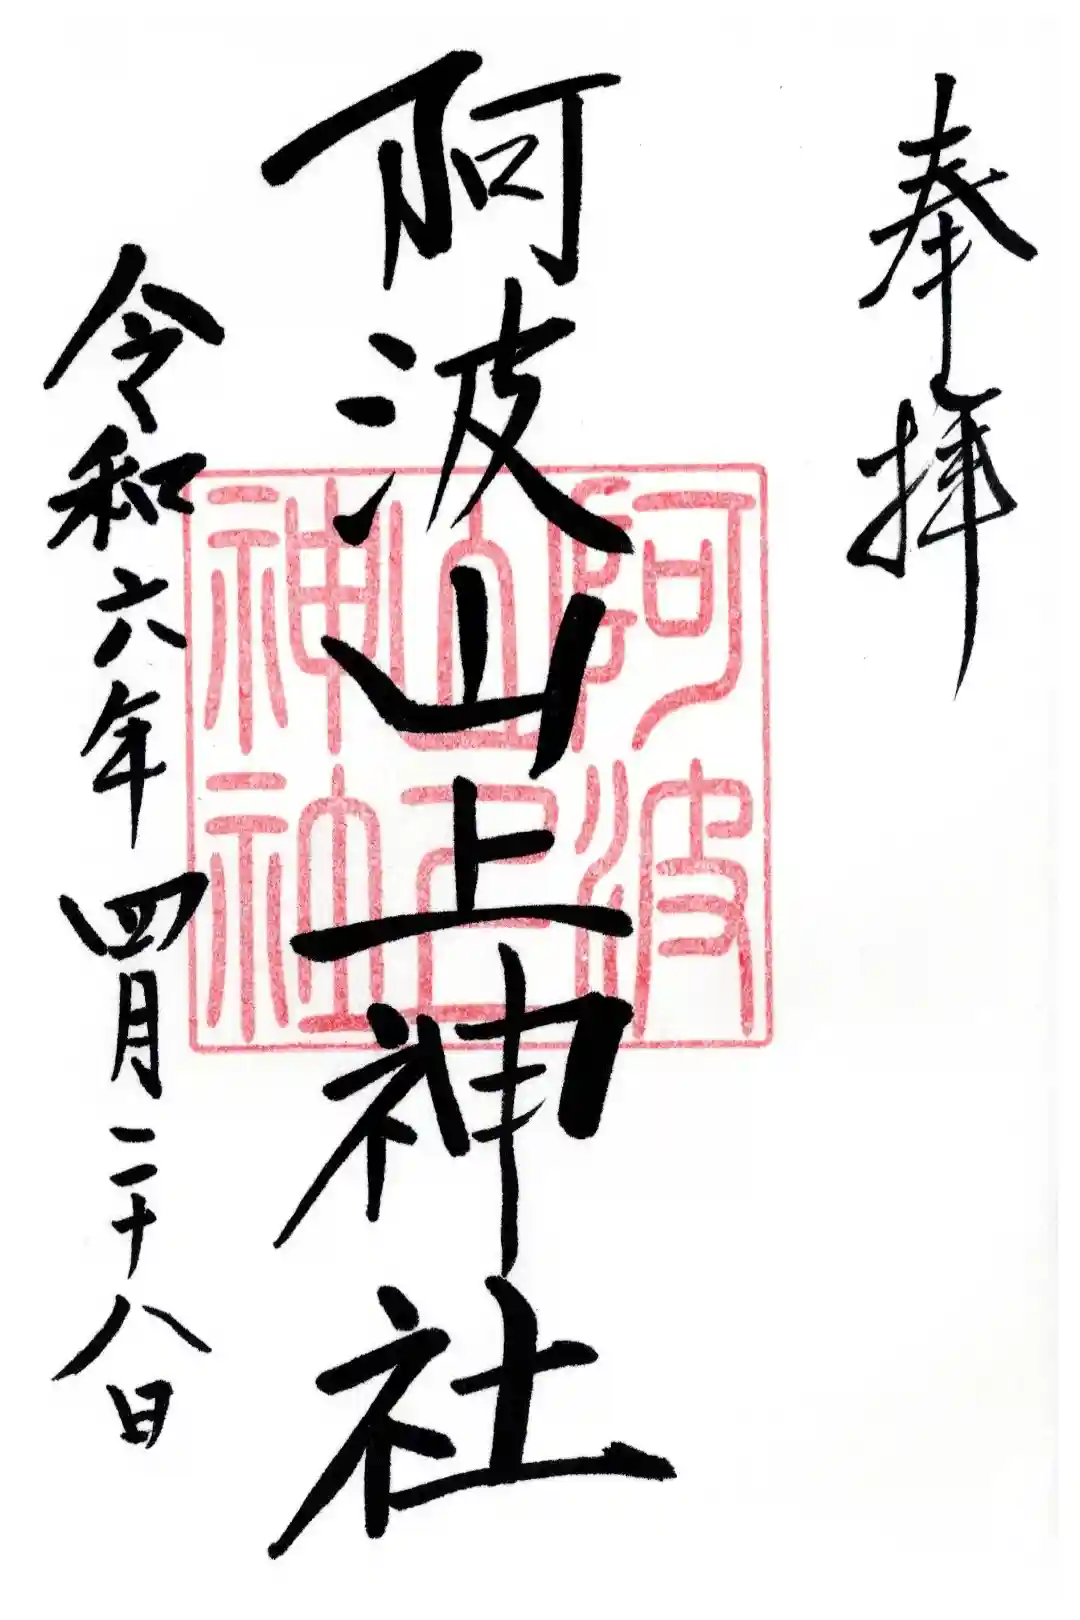 奉拝
阿波山上神社
阿波
山上
神社
令和六年四月二十八日